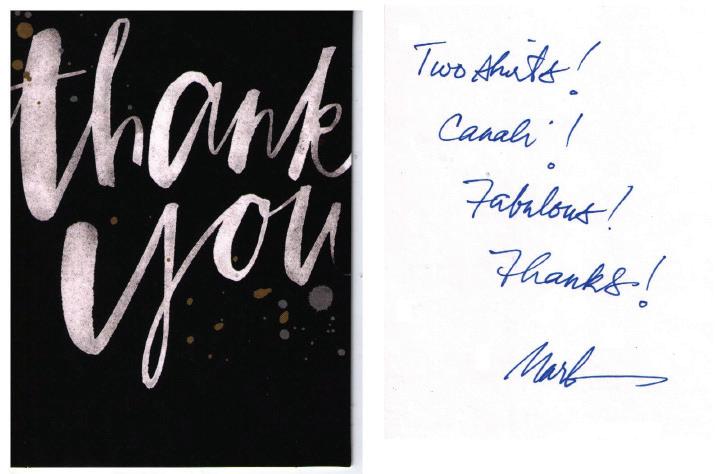 thank
you
Two shirts!
Canali!
Fabulous!
Thanks!
Mark